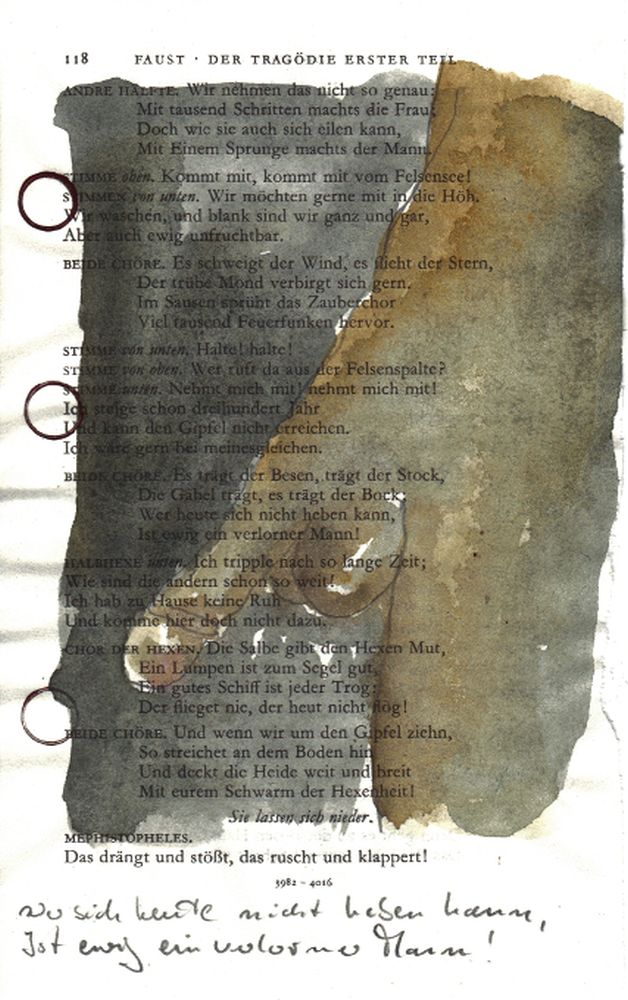 118 FAUST · DER TRAGÖDIE ERSTER TEIL
ANDRE HÄLFTE. Wir nehmen das nicht so genau:
Mit tausend Schritten machts die Frau;
Doch wie sie auch sich eilen kann,
Mit Einem Sprunge machts der Mann.
STIMME oben. Kommt mit, kommt mit vom Felsensee!
STIMMEN von unten. Wir möchten gerne mit in die Höh.
Wir waschen, und blank sind wir ganz und gar,
Aber auch ewig unfruchtbar.
BEIDE CHÖRE. Es schweigt der Wind, es flieht der Stern,
Der trübe Mond verbirgt sich gern.
Im Sausen sprüht das Zauberchor
Viel tausend Feuerfunken hervor.
STIMME von unten. Halte! halte!
STIMME von oben. Wer ruft da aus der Felsenspalte?
STIMME unten. Nehmt mich mit! nehmt mich mit!
Ich steige schon dreihundert Jahr
Und kann den Gipfel nicht erreichen.
Ich wäre gern bei meinesgleichen.
BEIDE CHÖRE. Es trägt der Besen, trägt der Stock,
Die Gabel trägt, es trägt der Bock;
Wer heute sich nicht heben kann,
Ist ewig ein verlorner Mann!
HALBHEXE unten. Ich tripple nach so lange Zeit;
Wie sind die andern schon so weit!
Ich hab zu Hause keine Ruh
Und komme hier doch nicht dazu.
CHOR DER HEXEN. Die Salbe gibt den Hexen Mut,
Ein Lumpen ist zum Segel gut,
Ein gutes Schiff ist jeder Trog;
Der flieget nie, der heut nicht flog!
BEIDE CHÖRE. Und wenn wir um den Gipfel ziehn,
So streichet an dem Boden hin
Und deckt die Heide weit und breit
Mit eurem Schwarm der Hexenheit!
Sie lassen sich nieder.
MEPHISTOPHELES.
Das drängt und stößt, das ruscht und klappert!
3982 – 4016
sich heute nicht heben kann,
Ist ewig ein verlorner Mann!